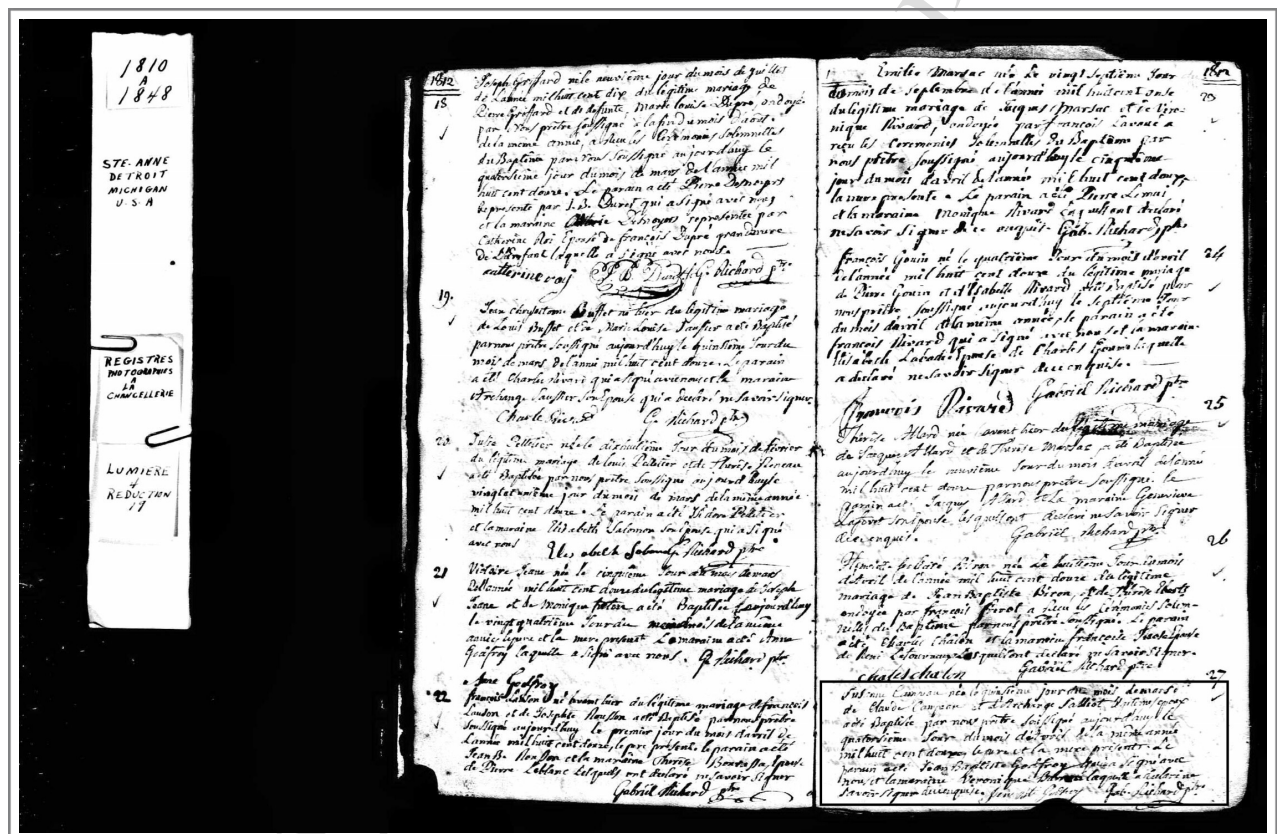 1810
A
1848
STE-ANNE
DETROIT
MICHIGAN
U.S.A
REGISTRES
PHOTOGRAPHIÉS
A
LA
CHANCELLERIE
LUMIERE
4
REDUCTION
19
1812
18
Joseph Groffard né le neuvième jour du mois de
de l'année mil huit cent dix du légitime mariage de
Pierre Groffard et de defunte Marie Louise Dupré, ondoyé
par nous prêtre soussigné
de la meme année, a reçu les Cérémonies Solemnelles
du Baptême par nous soussigné aujourd'huy le
quatorzième jour du mois de mars de l'année mil
huit cent douze. Le parain a été Pierre Desnoyers
représenté par J. B. qui a signé avec nous
et la maraine Desnoyers représentée par
Catherine Roi Epouse de françois Dupré grandmere
de l'Enfant laquelle a signé avec nous.
catherine roy G. Richard ptre
19.
Jean chrysostome Buffet né hier du légitime mariage
de Louis Buffet et de Marie Louise Saussier a été Baptisé
par nous prêtre soussigné aujourd'huy le quinzième jour du
mois de mars de l'année mil huit cent douze. Le parain
a été Charles qui a signé avec nous et la maraine
Archange Saussier son Epouse qui a declaré ne savoir signer.
Charle G. Richard ptre
20
Julie Pelletier née le jour du mois de fevrier
du légitime mariage de Louis Pelletier et de Therese
a été Baptisée par nous prêtre soussigné aujourd'huy le
vingt et unième jour du mois de mars de la même année
mil huit cent douze. Le parain a été Isidore Pelletier
et la maraine Elisabeth Salomon son Epouse qui a signé
avec nous G. Richard ptre
21
Victoire Jeane née le cinquième jour du mois de mars
de l'année mil huit cent douze du légitime mariage de Joseph
Jeane et de Monique a été Baptisée aujourd'huy
le vingt quatrième jour du mois de la même
année le pere et la mere présent La maraine a été Anne
Godfroy laquelle a signé avec nous. G. Richard ptre
Anne Godfroy
22
françois Lauson né avant hier du légitime mariage de françois
Lauson et de Josephte a été Baptisé par nous prêtre
soussigné aujourd'huy le premier jour du mois d'avril de
l'année mil huit cent douze, le pere présent, le parain a été
Jean B. et la maraine Therese Epouse
de Pierre Leblanc lesquels ont declaré ne savoir signer
Gabriel Richard ptre
1812
23
Emilie Marsac née le vingt septième Jour
du mois de septembre de l'année mil huit cent onze
du légitime mariage de Jacques Marsac et de Vero-
nique Rivard, ondoyée par françois a
reçu les Ceremonies Solemnelles du Baptême par
nous prêtre soussigné aujourd'huy le cinquième
jour du mois d'avril de l'année mil huit cent douze,
la mere presente. Le parain a été
et la maraine Monique Rivard lesquels ont declaré
ne savoir signer de ce enquis. Gab. Richard ptre
24
françois Gouin né le quatrième jour du mois d'avril
de l'année mil huit cent douze du légitime mariage
de Pierre Gouin et d'Elisabeth Rivard a été Baptisé par
nous prêtre soussigné aujourd'huy le septième Jour
du mois d'avril de la même année, le parain a été
françois Rivard qui a signé avec nous et la maraine
Elisabeth Labadi Epouse de Charles Gouin laquelle
a déclaré ne savoir signer de ce enquise.
François Rivard Gabriel Richard ptre
25
Thérèse Allard née avant hier du légitime mariage
de Jacques Allard et de Thérèse Marsac a été Baptisée
aujourd'huy le neuvième Jour du mois d'avril de l'année
mil huit cent douze par nous prêtre soussigné. le
parain a été Jacques Allard et la maraine Genevieve
Laforet son Epouse, lesquels ont declaré ne savoir signer
de ce enquis. Gabriel Richard ptre
26
née le huitième Jour du mois
d'avril de l'année mil huit cent douze du légitime
mariage de Jean Baptiste et de Thérèse
ondoyée par françois a reçu les Cérémonies Solem-
nelles du Baptême par nous prêtre soussigné. Le parain
a été Charles Chalon et la maraine francoise Epouse
de René Letourneau lesquels ont declaré ne savoir signer.
chales chalon Gabriel Richard ptre
27
Susanne Campau née le jour du mois de mars
de Claude Campau et d'Archange Salliot
a été Baptisée par nous prêtre soussigné aujourd'huy le
quatorzième Jour du mois d'avril de la même année
mil huit cent douze, le pere et la mere présents. Le
parain a été Jean Baptiste Godfroy qui a signé avec
nous et la maraine Veronique laquelle a declaré ne
savoir signer de ce enquise. Gab. Richard ptre